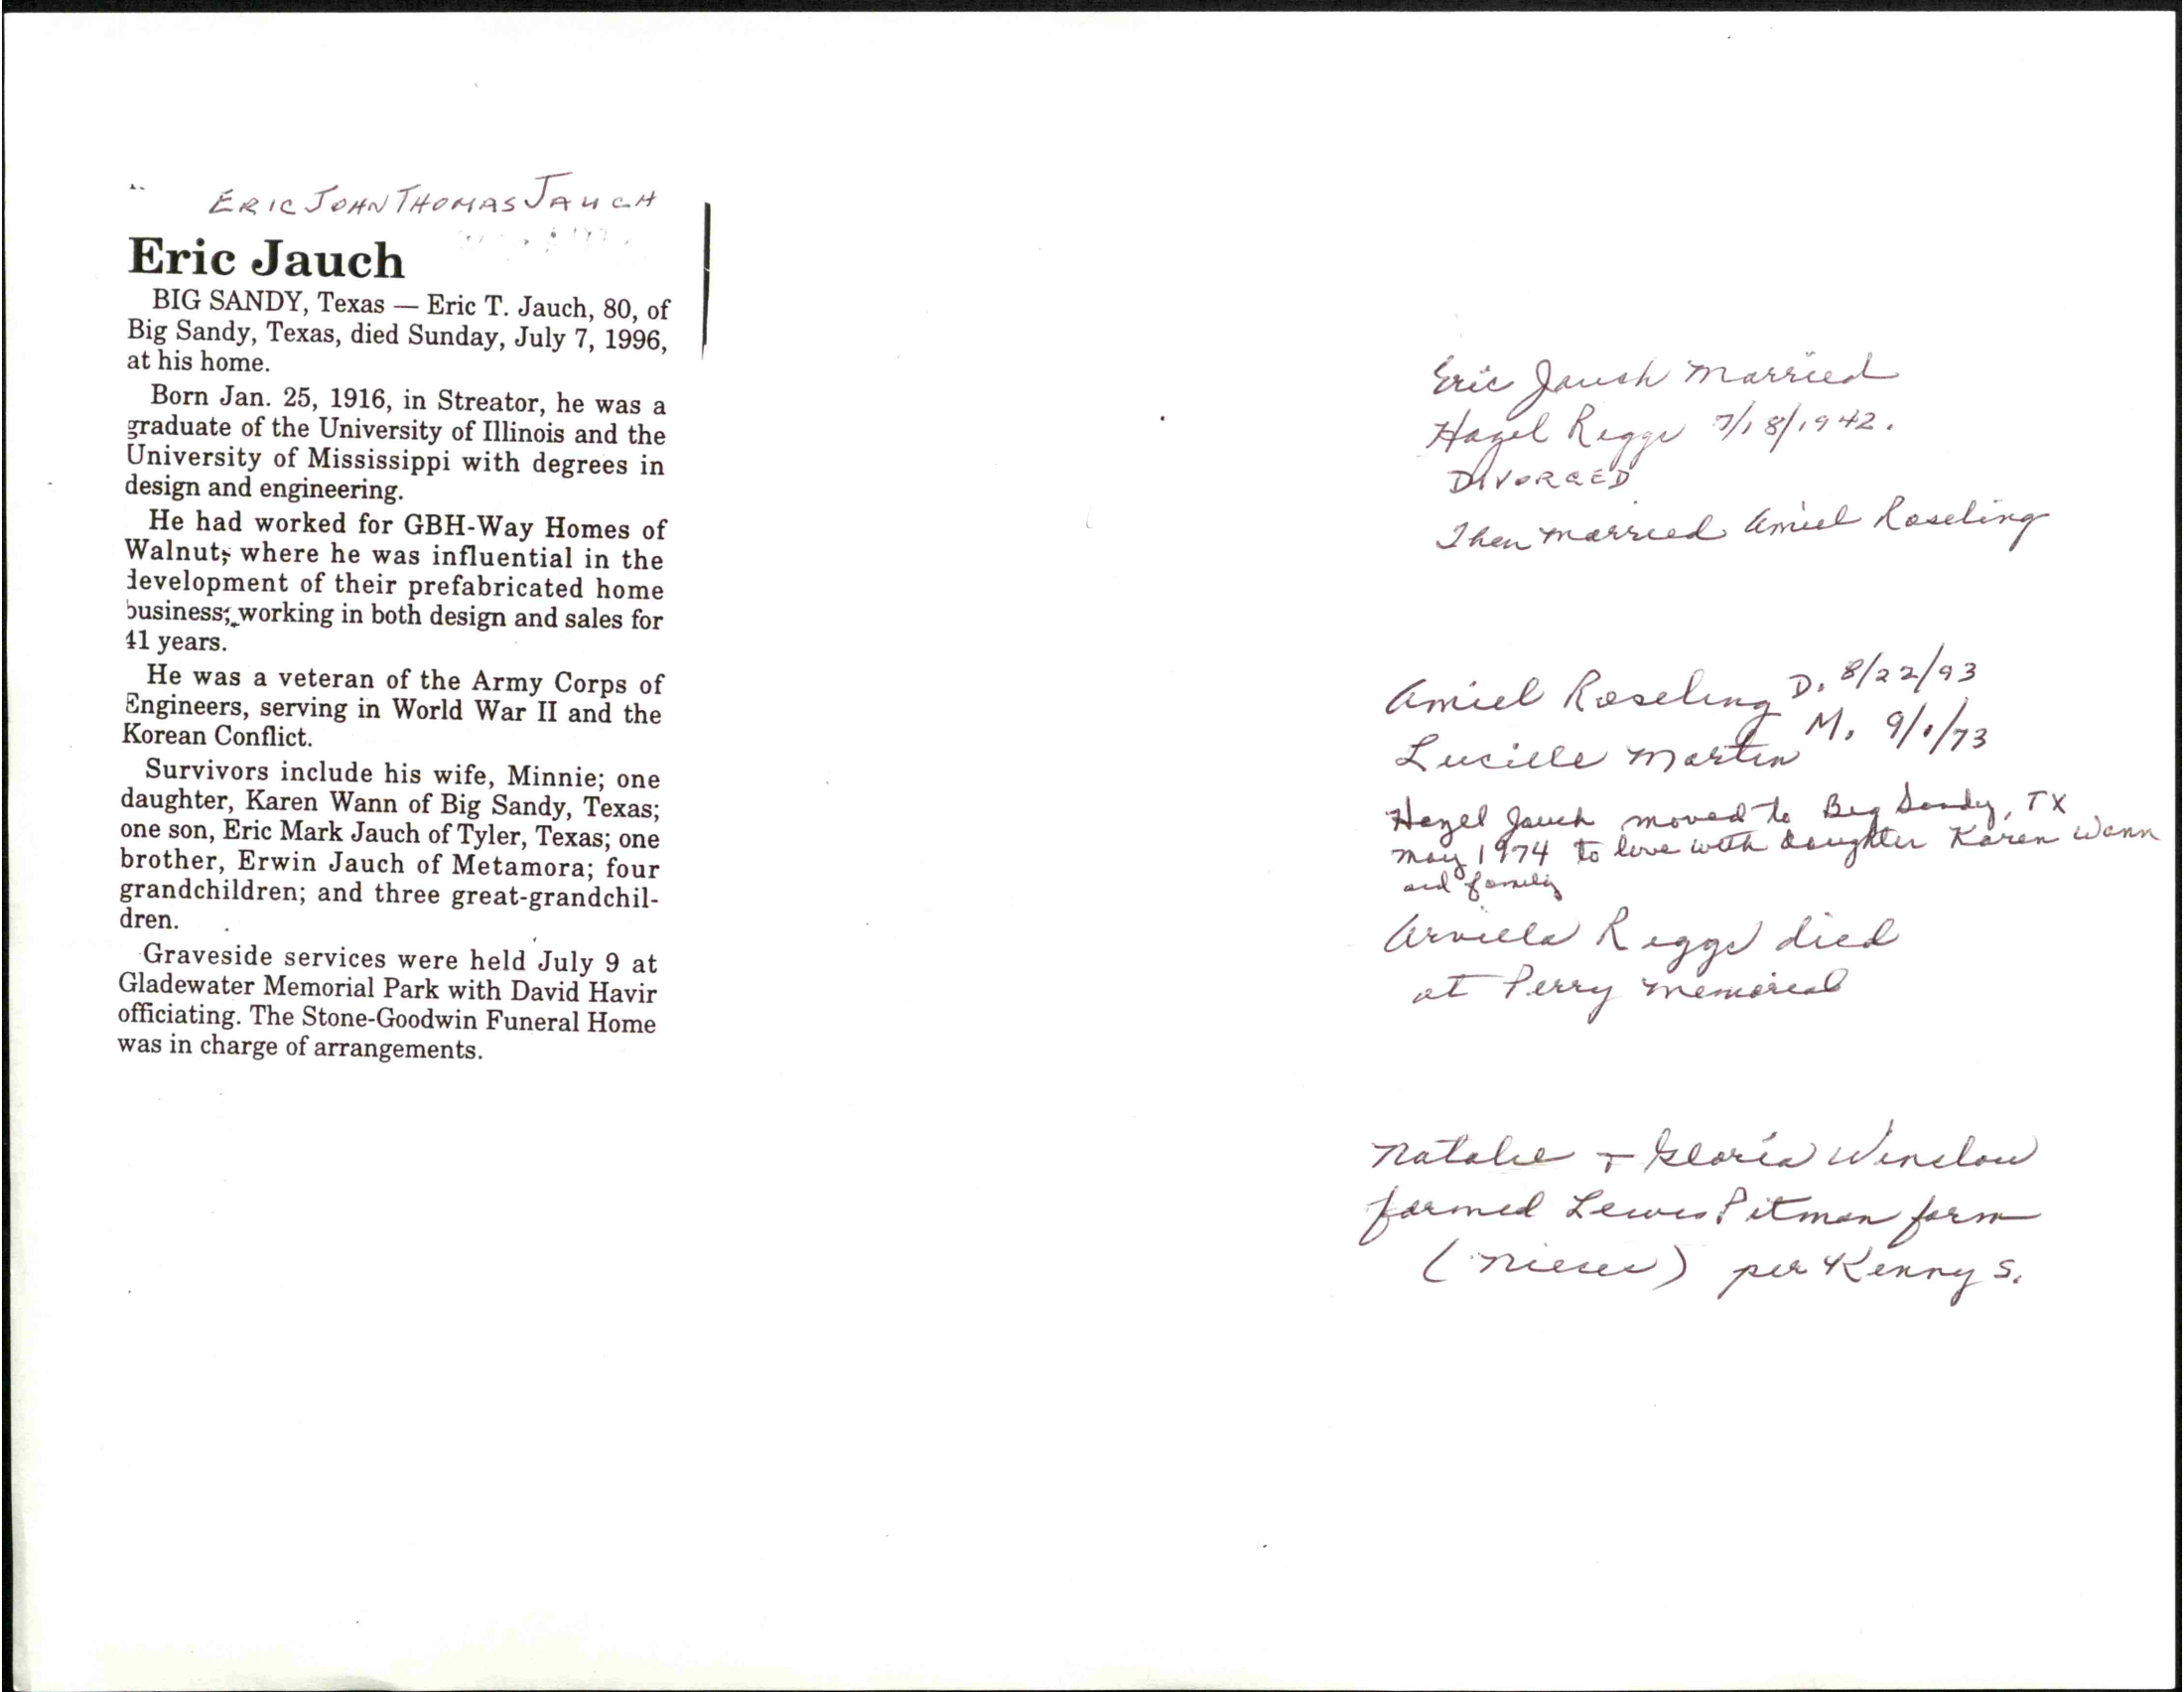 ERIC JOHN THOMAS JAUCH
Eric Jauch
BIG SANDY, Texas — Eric T. Jauch, 80, of
Big Sandy, Texas, died Sunday, July 7, 1996,
at his home.
Born Jan. 25, 1916, in Streator, he was a
graduate of the University of Illinois and the
University of Mississippi with degrees in
design and engineering.
He had worked for GBH-Way Homes of
Walnut; where he was influential in the
development of their prefabricated home
business; working in both design and sales for
41 years.
He was a veteran of the Army Corps of
Engineers, serving in World War II and the
Korean Conflict.
Survivors include his wife, Minnie; one
daughter, Karen Wann of Big Sandy, Texas;
one son, Eric Mark Jauch of Tyler, Texas; one
brother, Erwin Jauch of Metamora; four
grandchildren; and three great-grandchil-
dren.
Graveside services were held July 9 at
Gladewater Memorial Park with David Havir
officiating. The Stone-Goodwin Funeral Home
was in charge of arrangements.
Eric Jauch married
Hazel Riggs 7/18/1942.
DIVORCED
Then married Amiel Roseling
Amiel Roseling D. 8/22/93
Lucille Martin M. 9/1/73
Hazel Jauch moved to Big Sandy, TX
May 1974 to live with daughter Karen Wann
and family
Arvilla Riggs died
at Perry Memorial
Natalie + Gloria Winslow
farmed Lewis Pitman farm
(Nieces) per Kenny S.